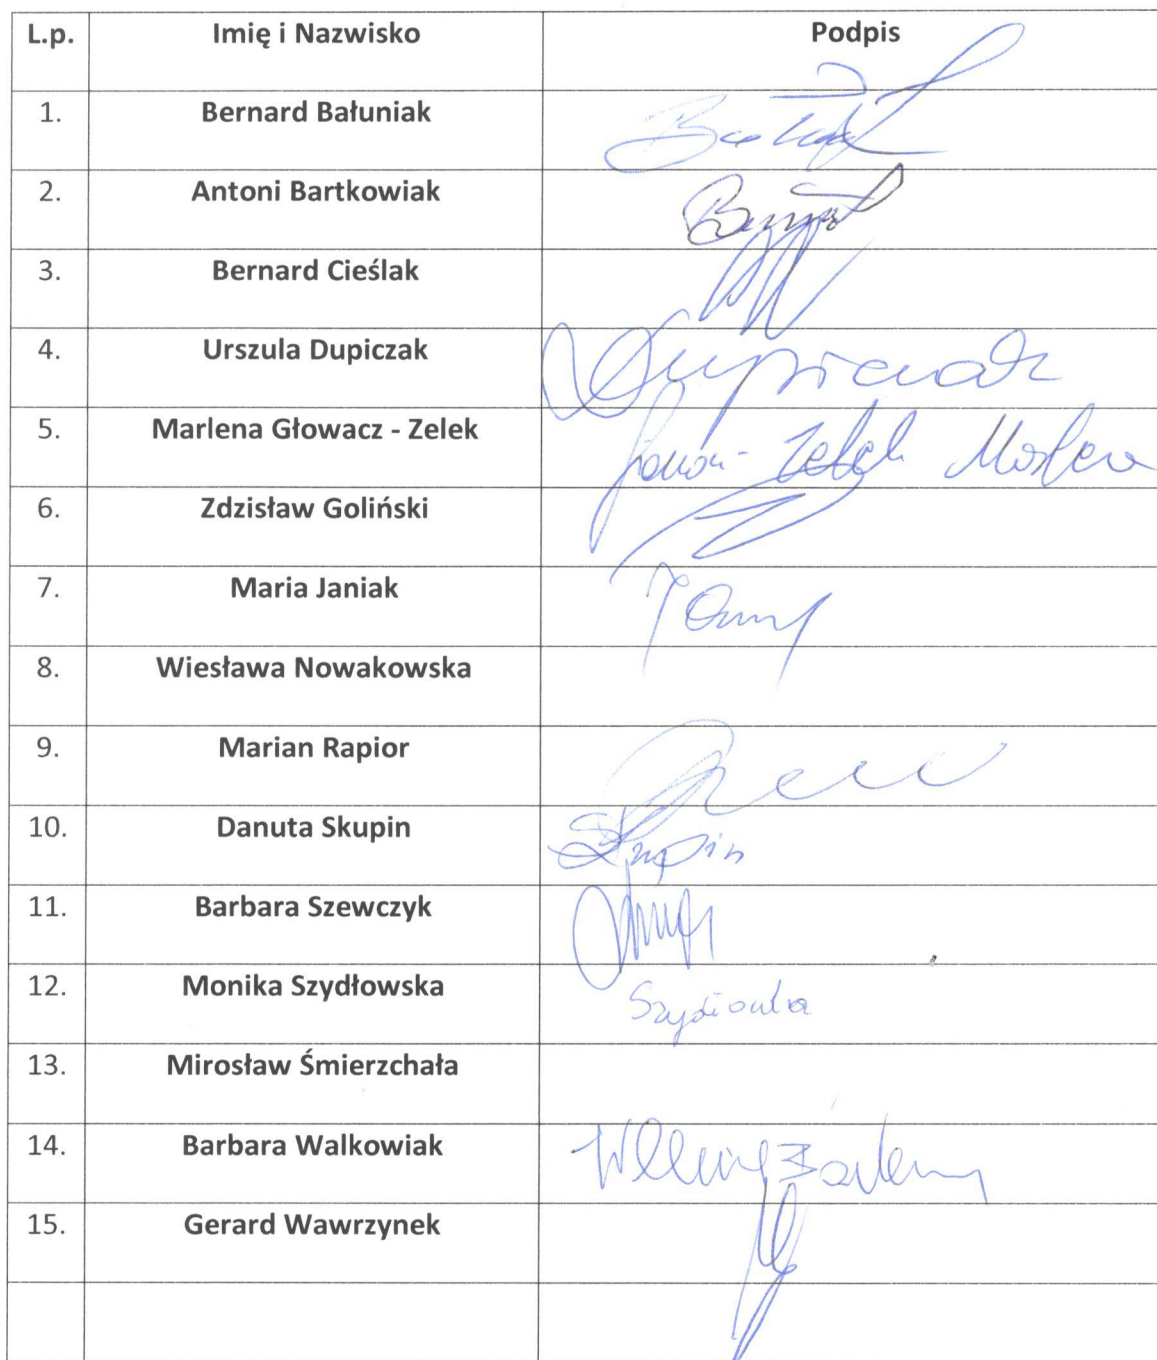 L.p. Imię i Nazwisko Podpis
1. Bernard Bałuniak
2. Antoni Bartkowiak
3. Bernard Cieślak
4. Urszula Dupiczak Dupiczak
5. Marlena Głowacz - Zelek Zelek Marlena
6. Zdzisław Goliński
7. Maria Janiak
8. Wiesława Nowakowska
9. Marian Rapior
10. Danuta Skupin Skupin
11. Barbara Szewczyk
12. Monika Szydłowska Szydłowska
13. Mirosław Śmierzchała
14. Barbara Walkowiak
15. Gerard Wawrzynek